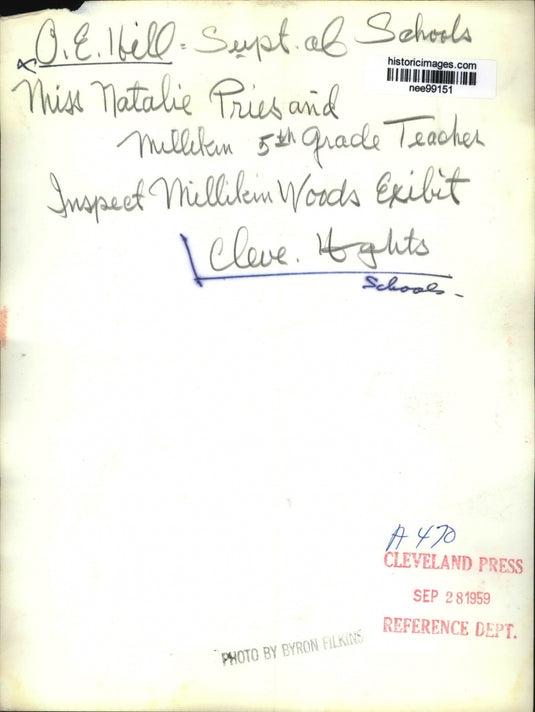 O.E. Hill = Supt. of Schools
historicimages.com
nee99151
Miss Natalie Priesand
Millikin 5th Grade Teacher
Inspect Millikin Woods Exibit
Cleve. Hghts
Schools -
A 470
CLEVELAND PRESS
SEP 28 1959
REFERENCE DEPT.
PHOTO BY BYRON FILKINS